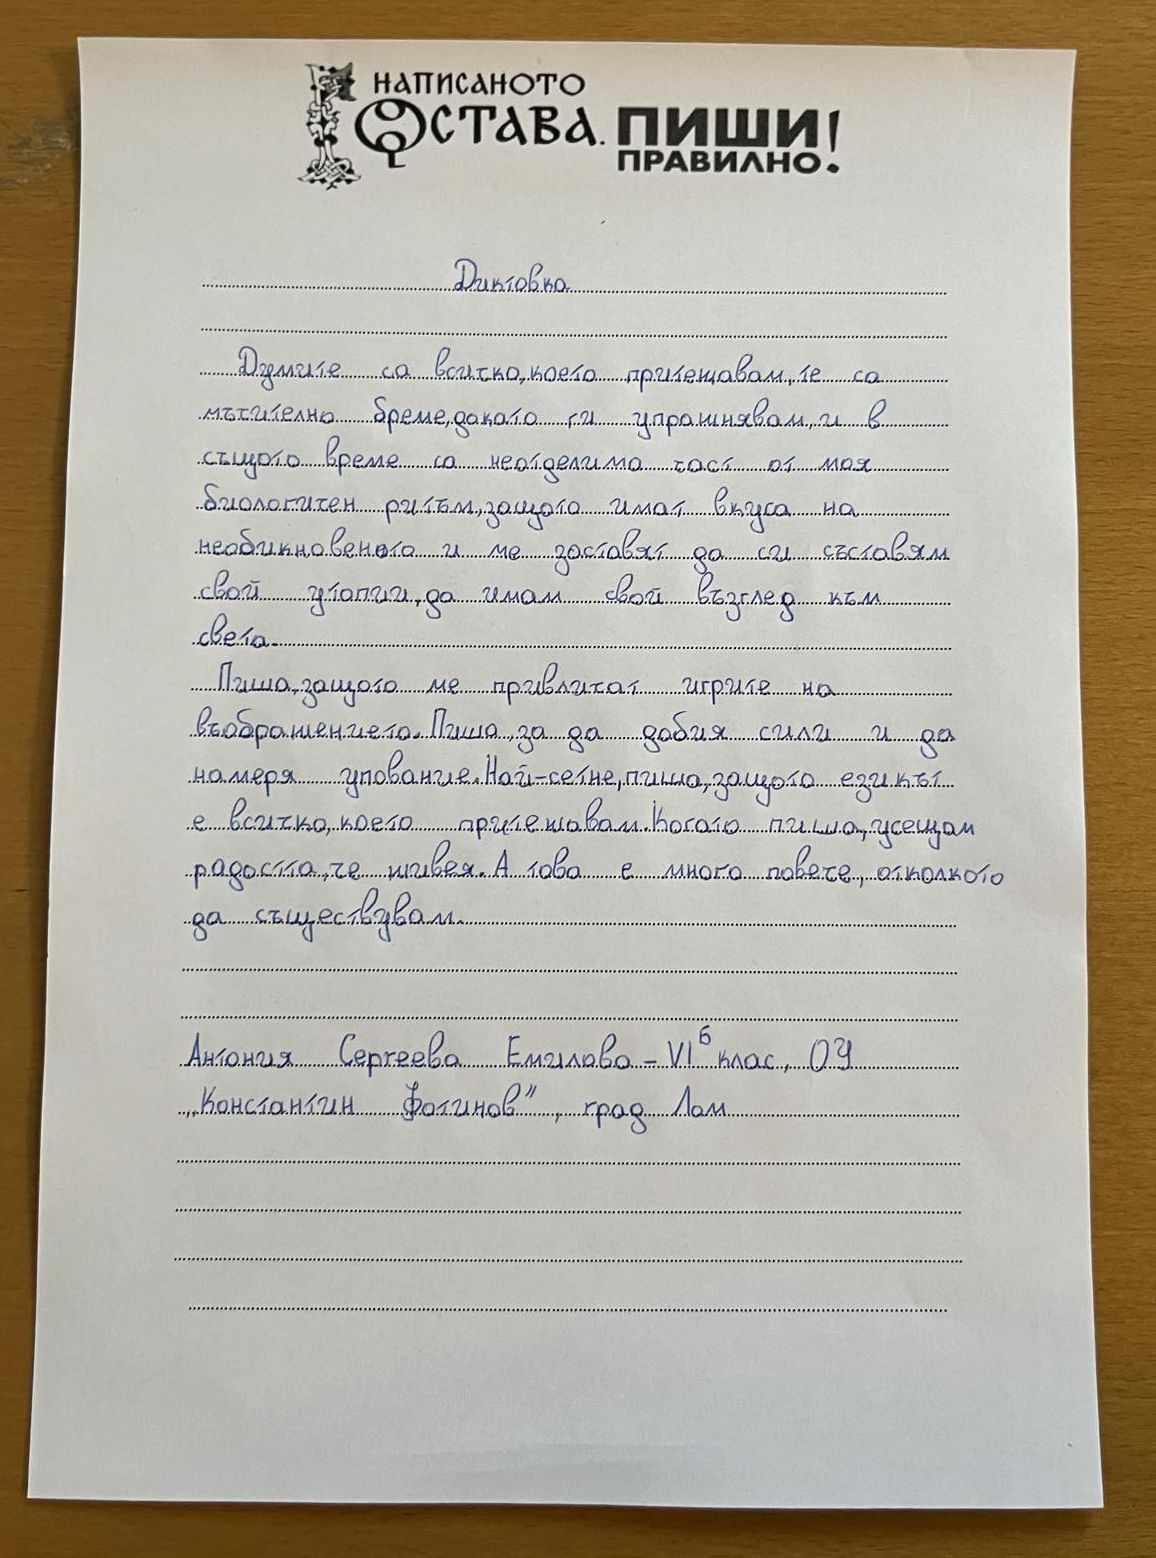 НАПИСАНОТО
ОСТАВА. ПИШИ!
ПРАВИЛНО!
Диктовка
Думите са всичко, което притежавам, те са
мъчително бреме, докато ги упражнявам, и в
същото време са неотделима част от моя
биологичен ритъм, защото имат вкуса на
необикновеното и ме заставят да си съставям
свой утопии, да имам свой възглед към
света.
Пиша, защото ме привличат игрите на
въображението. Пиша, за да добия сили и да
намеря упование. Най-сетне, пиша, защото езикът
е всичко, което притежавам. Когато пиша, усещам
радостта, че живея. А това е много повече, отколкото
да съществувам.
Антония Сергеева Емилова - VI б клас, ОУ
„Константин Фотинов", град Лом